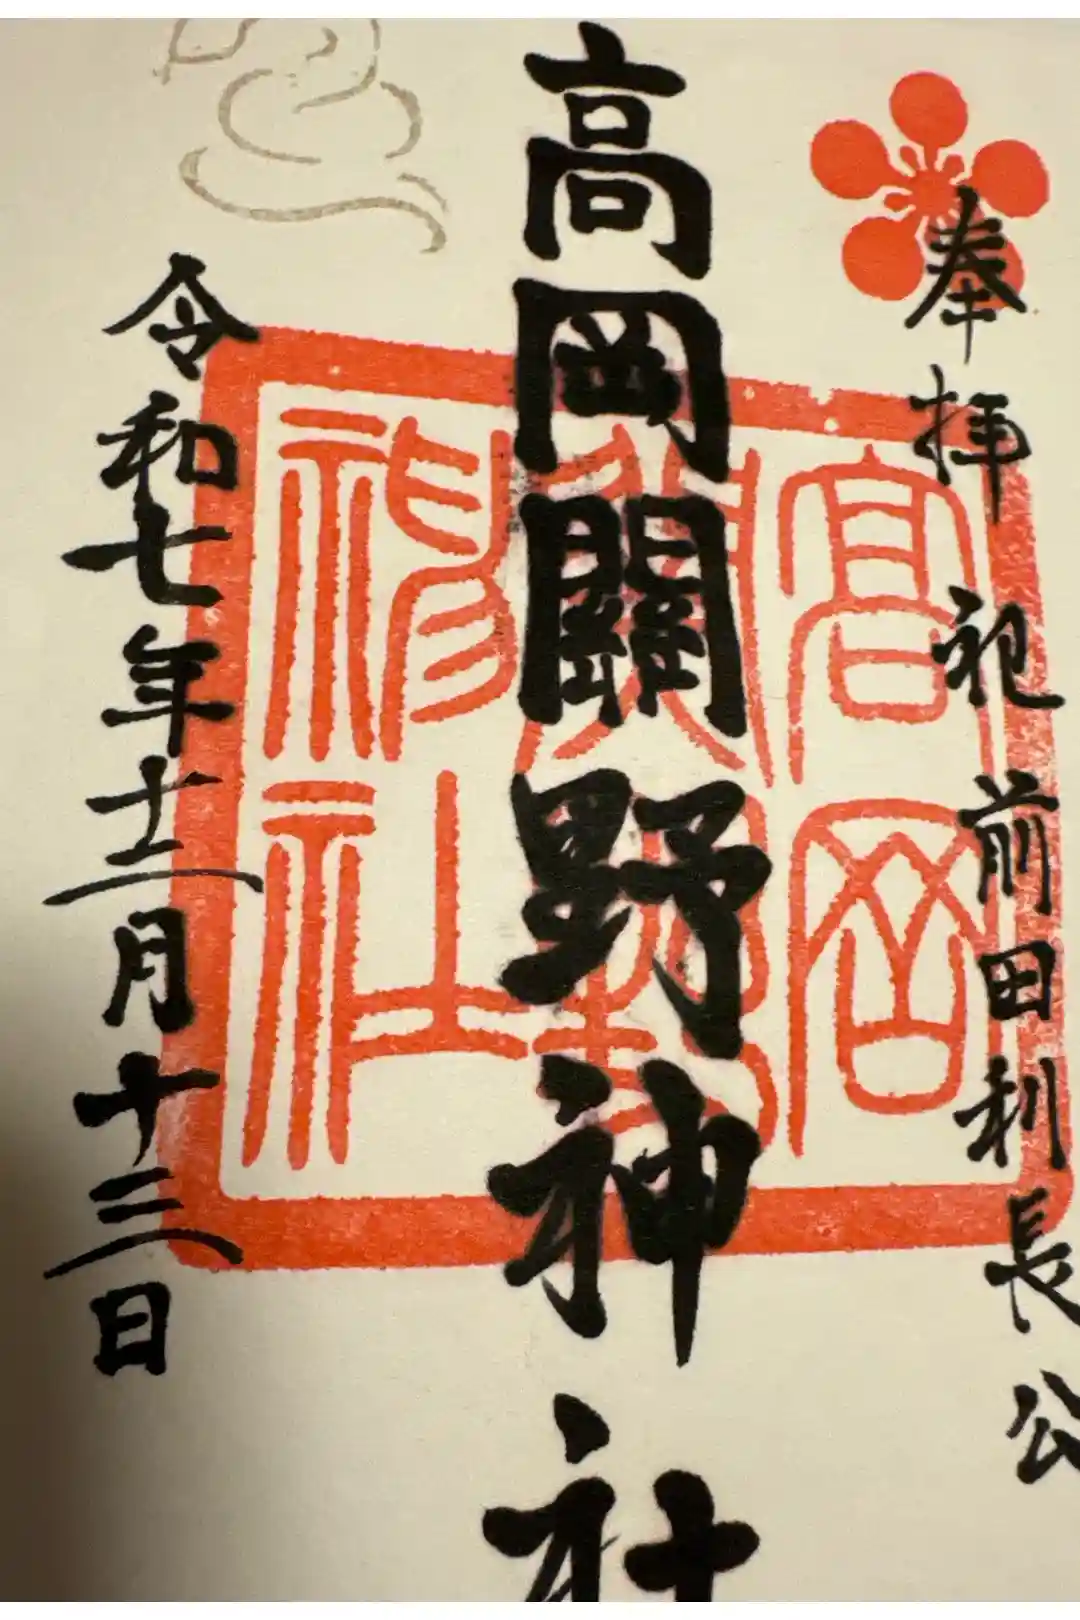 奉拝 祀 前田利長公
高岡關野神社
令和七年十二月十三日
高岡
神社